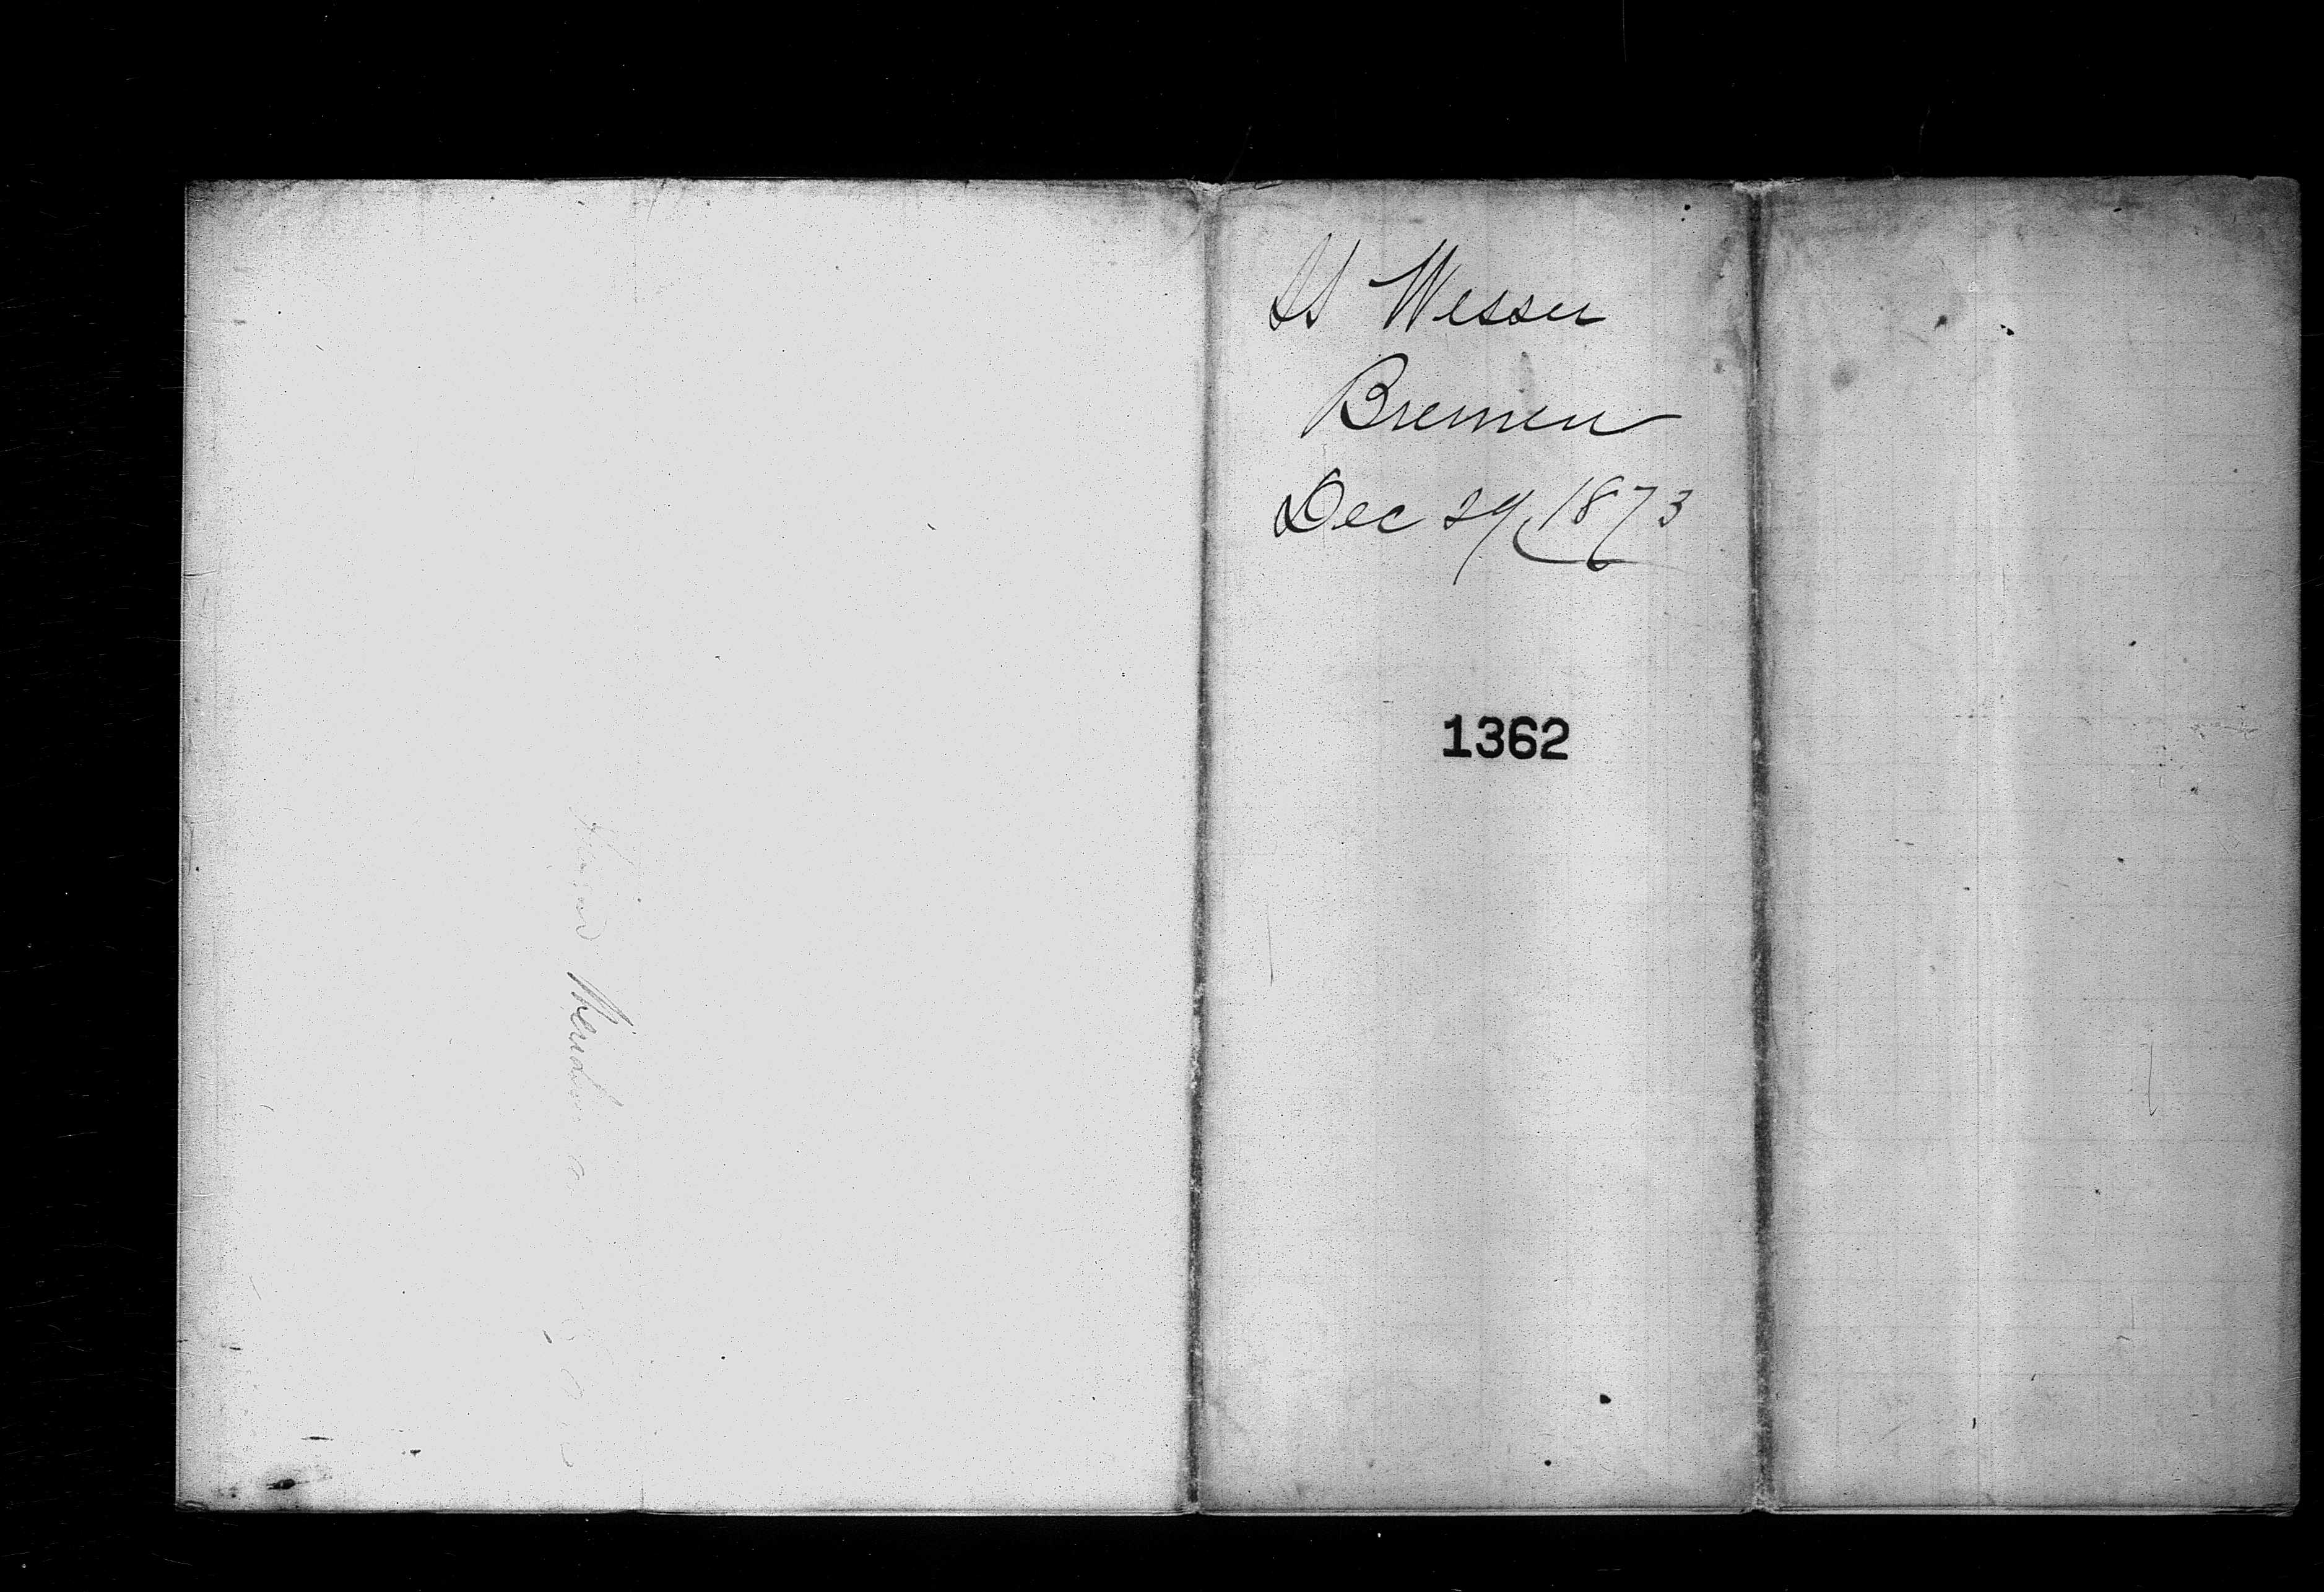 SS Wesser
Bremen
Dec 29, 1873
1362